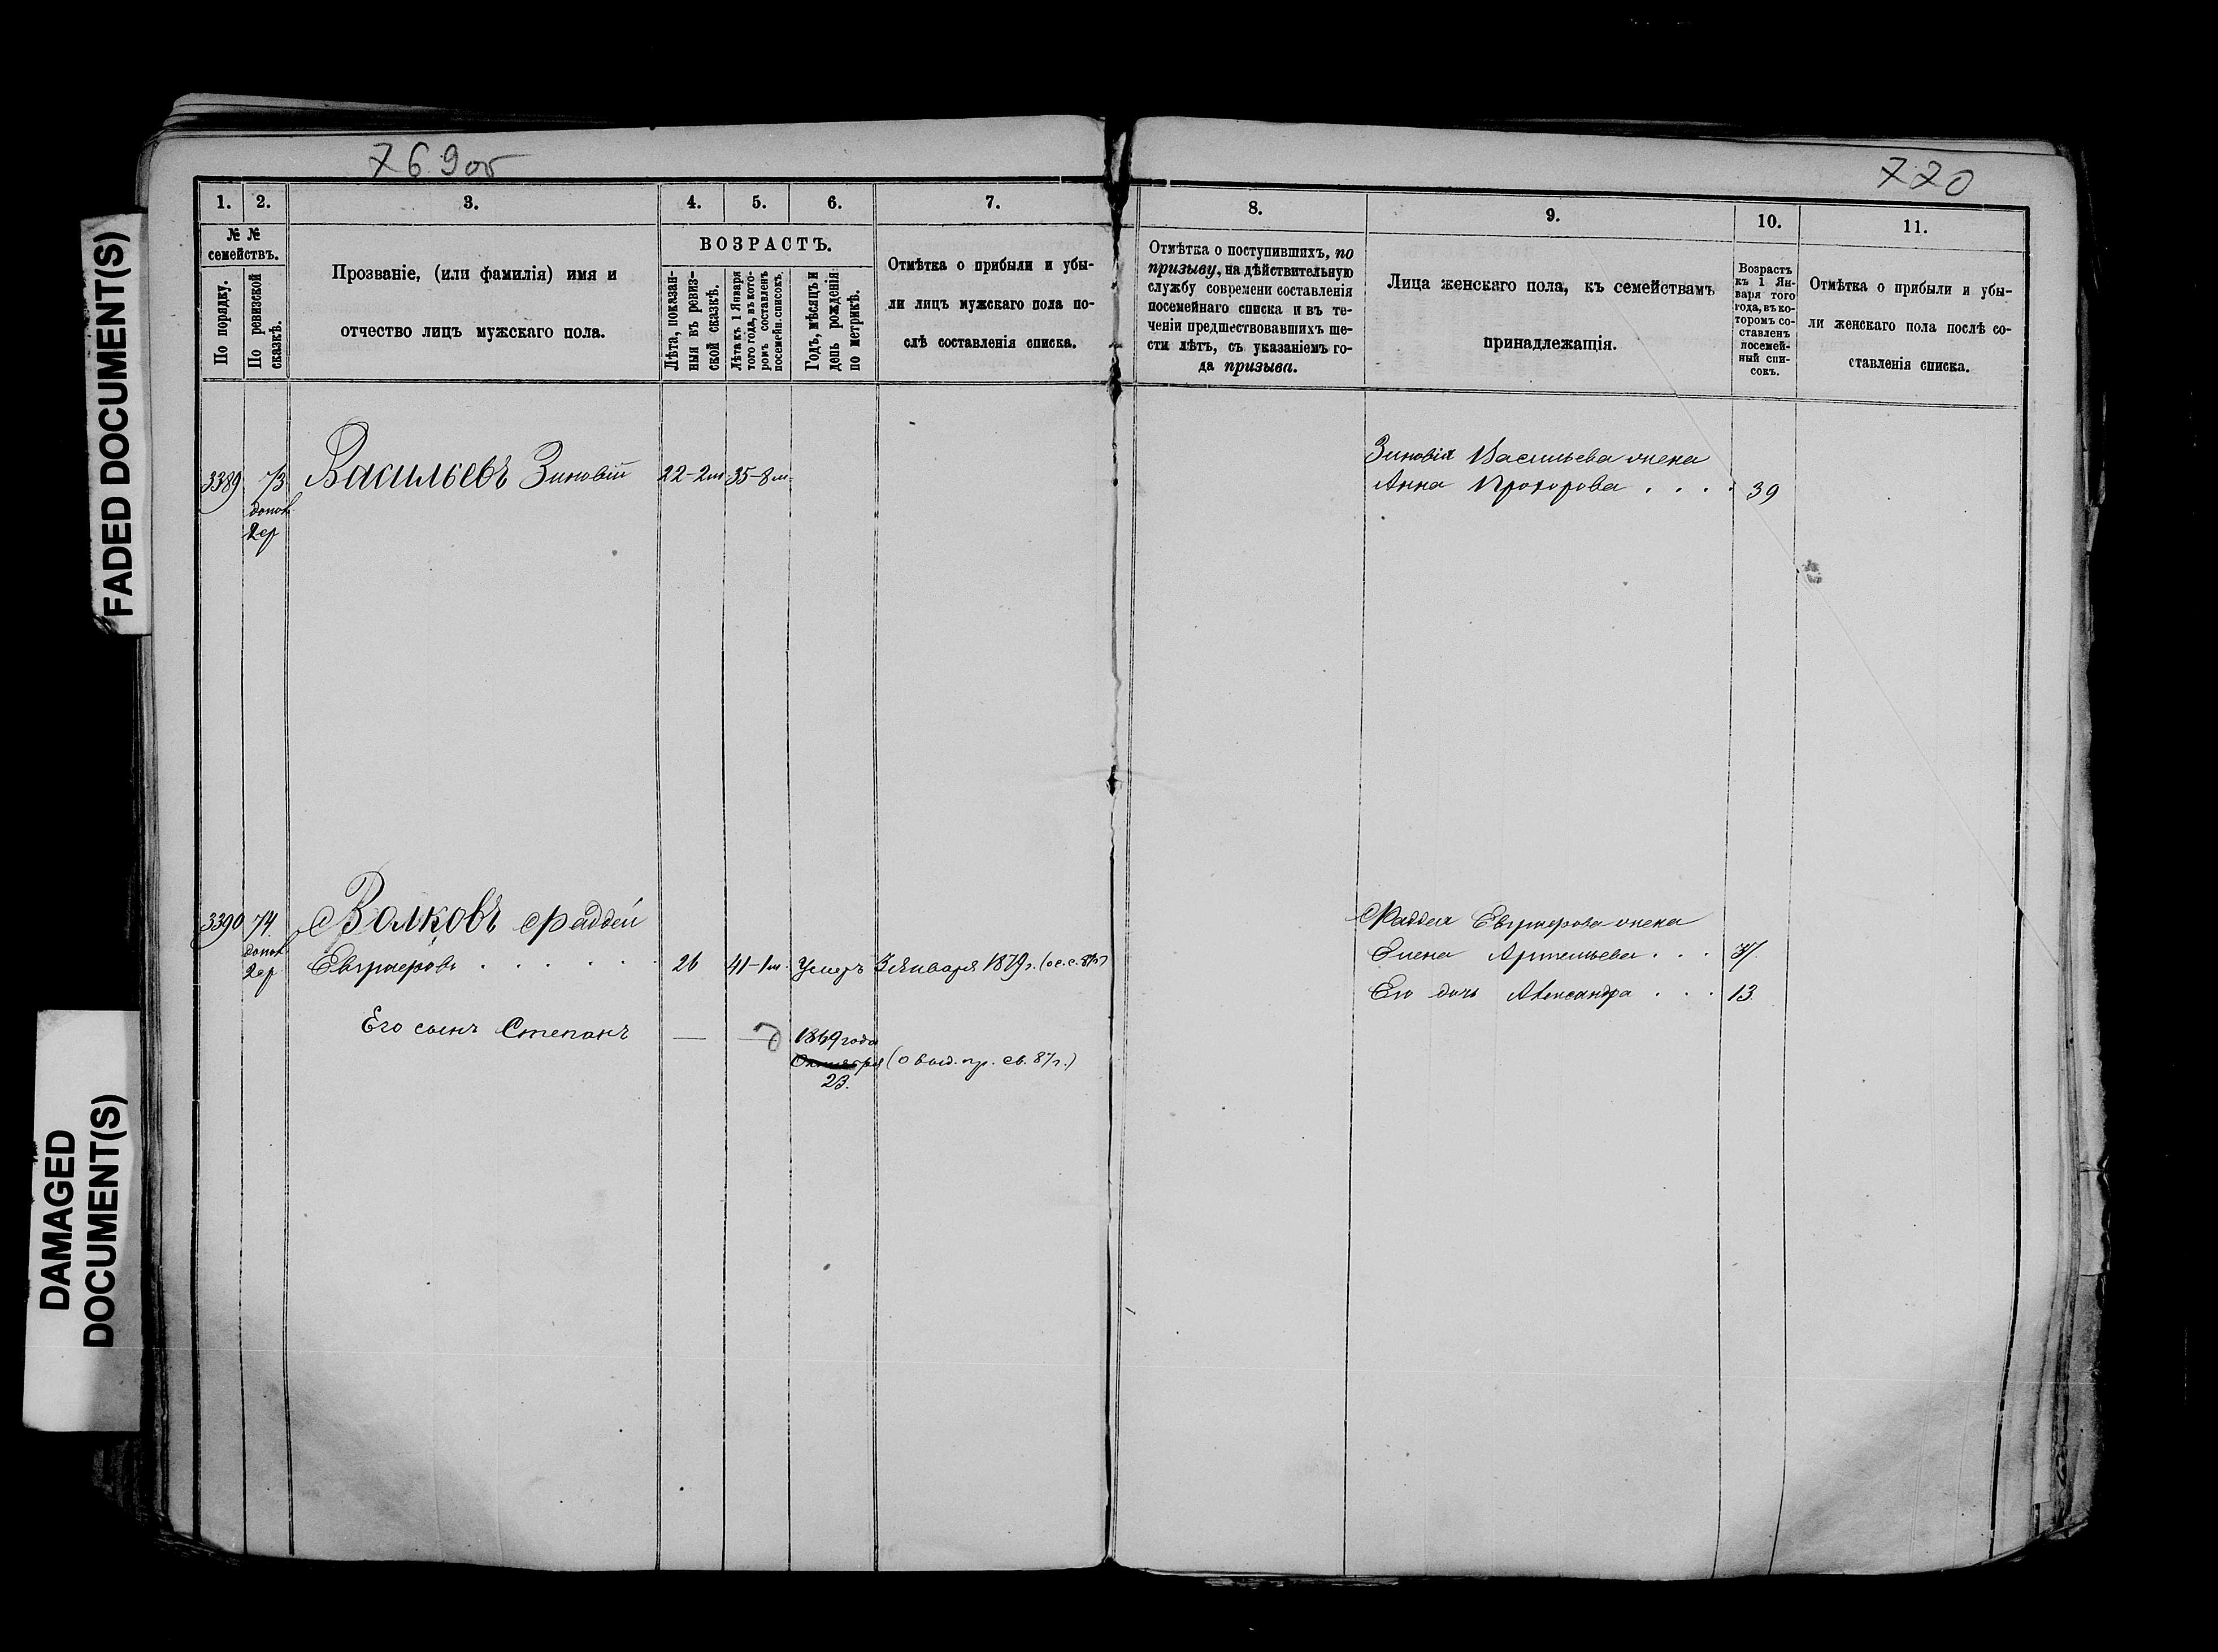 769об
770
FADED DOCUMENT(S)
DAMAGED
DOCUMENT(S)
1.
2.
3.
4.
5.
6.
7.
№ №
семействъ.
По порядку.
По ревизской
сказкѣ.
Прозваніе, (или фамилія) имя и
отчество лицъ мужскаго пола.
ВОЗРАСТЪ.
Лѣта, показан-
ныя въ ревиз-
ской сказкѣ.
Лѣта къ 1 Января
того года, въ кото-
ромъ составленъ
посемейн. списокъ.
Годъ, мѣсяцъ и
день рожденія
по метрикѣ.
Отмѣтка о прибыли и убы-
ли лицъ мужскаго пола по-
слѣ составленія списка.
8.
9.
10.
11.
Отмѣтка о поступившихъ, по
призыву, на дѣйствительную
службу современи составленія
посемейнаго списка и въ те-
ченіи предшествовавшихъ ше-
сти лѣтъ, съ указаніемъ го-
да призыва.
Лица женскаго пола, къ семействамъ
принадлежащія.
Возрастъ
къ 1 Ян-
варя того
года, въ ко-
торомъ со-
ставленъ
посемей-
ный спи-
сокъ.
Отмѣтка о прибыли и убы-
ли женскаго пола послѣ со-
ставленія списка.
3389 73 Васильевъ Зиновій 22-2м 35-8м.
допол
2 ср
Зиновія Васильева жена
Анна Прохорова . . . . 39
3390 74 Волковъ Фаддей
допол
2 ср
Евграфовъ . . . . . . 26 41-1м. Умеръ 3 Января 1879 г.
Его сынъ Степанъ — — 1869 года
Октября
23.
Фаддея Евграфова жена
Елена Артемьева . . .
Его дочь Александра . . . 13.